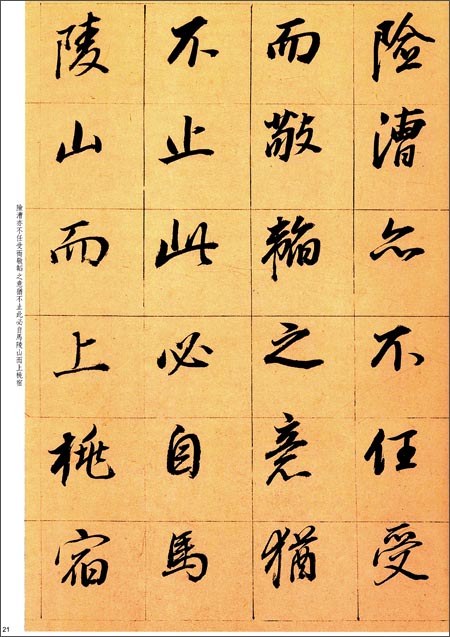 險漕亦不任受
而敬韜之意猶
不止此必自馬
陵山而上桃宿
險漕亦不任受而敬韜之意猶不止此必自馬陵山而上桃宿
21